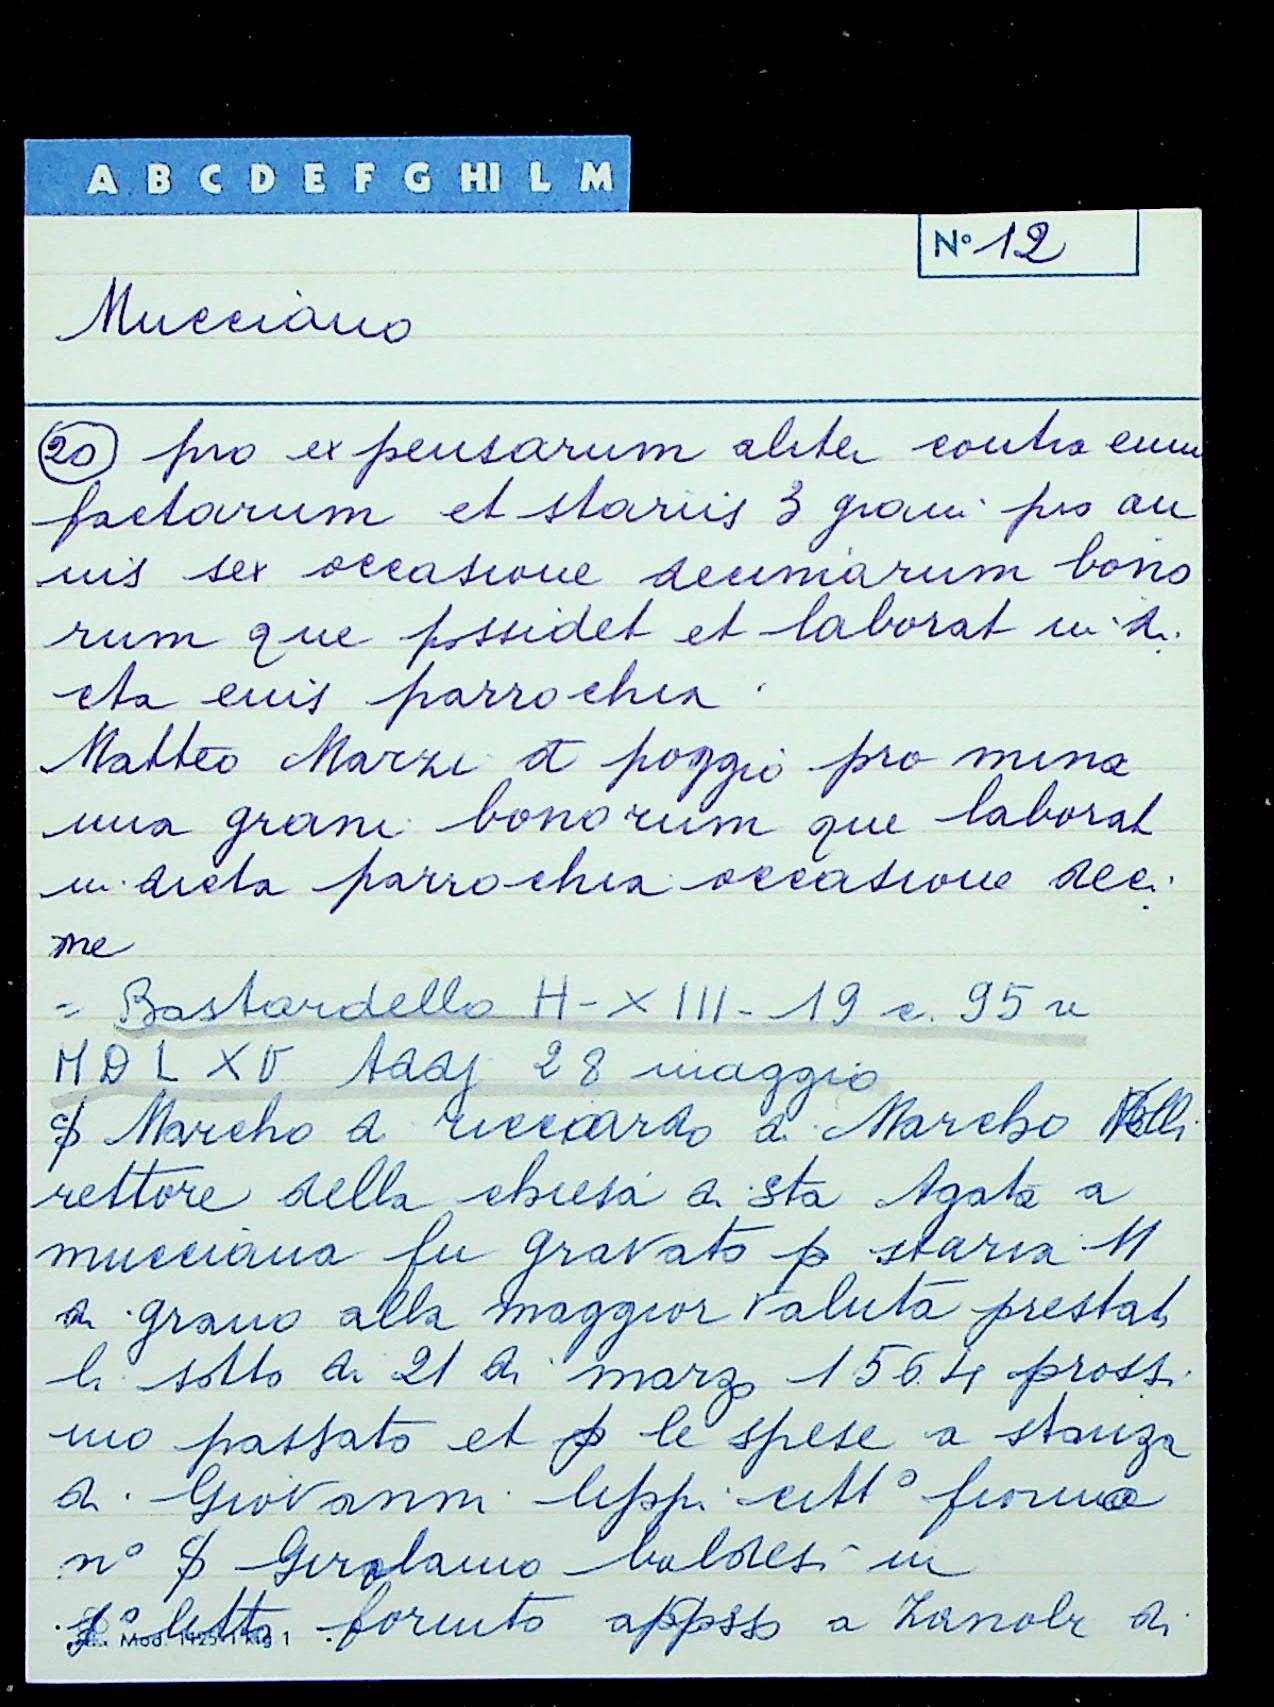 A B C D E F G HI L M
N° 12
Mucciano
20 pro expensarum aliter contra eum
factarum et stariis 3 grani pro an
nis sex occasione decimarum bono
rum que possidet et laborat in di
cta euis parrochia
Matteo Marzi d poggio pro mina
una grani bonorum que laborat
in dicta parrochia occasione deci
me
= Bastardello H-XIII-19 c. 95 v
MDLXV Addj 28 maggio
Marcho di ricciardo di Marcho
rettore della chiesa di sta Agata a
mucciana fu gravato p staria 11
di grano alla maggior valuta prestat
li sotto di 21 di marzo 1564 prossi
mo passato et p le spese a stanza
di Giovanni lippi citt° fiorno
n° Girolamo baldesi in
letto fornito appsso a Zanobi di
Mod.